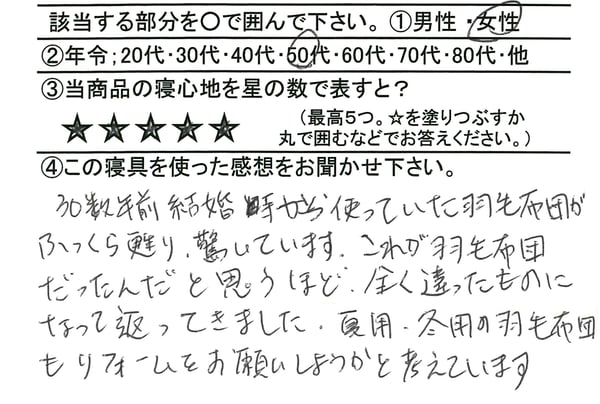 該当する部分を〇で囲んで下さい。①男性・女性
②年令;20代・30代・40代・50代・60代・70代・80代・他
③当商品の寝心地を星の数で表すと?
★★★★★ (最高5つ。☆を塗りつぶすか
丸で囲むなどでお答えください。)
④この寝具を使った感想をお聞かせ下さい。
30数年前結婚時から使っていた羽毛布団が
ふっくら甦り、驚いています。これが羽毛布団
だったんだと思うほど、全く違ったものに
なって返ってきました。夏用、冬用の羽毛布団
もリフォームをお願いしようかと考えています